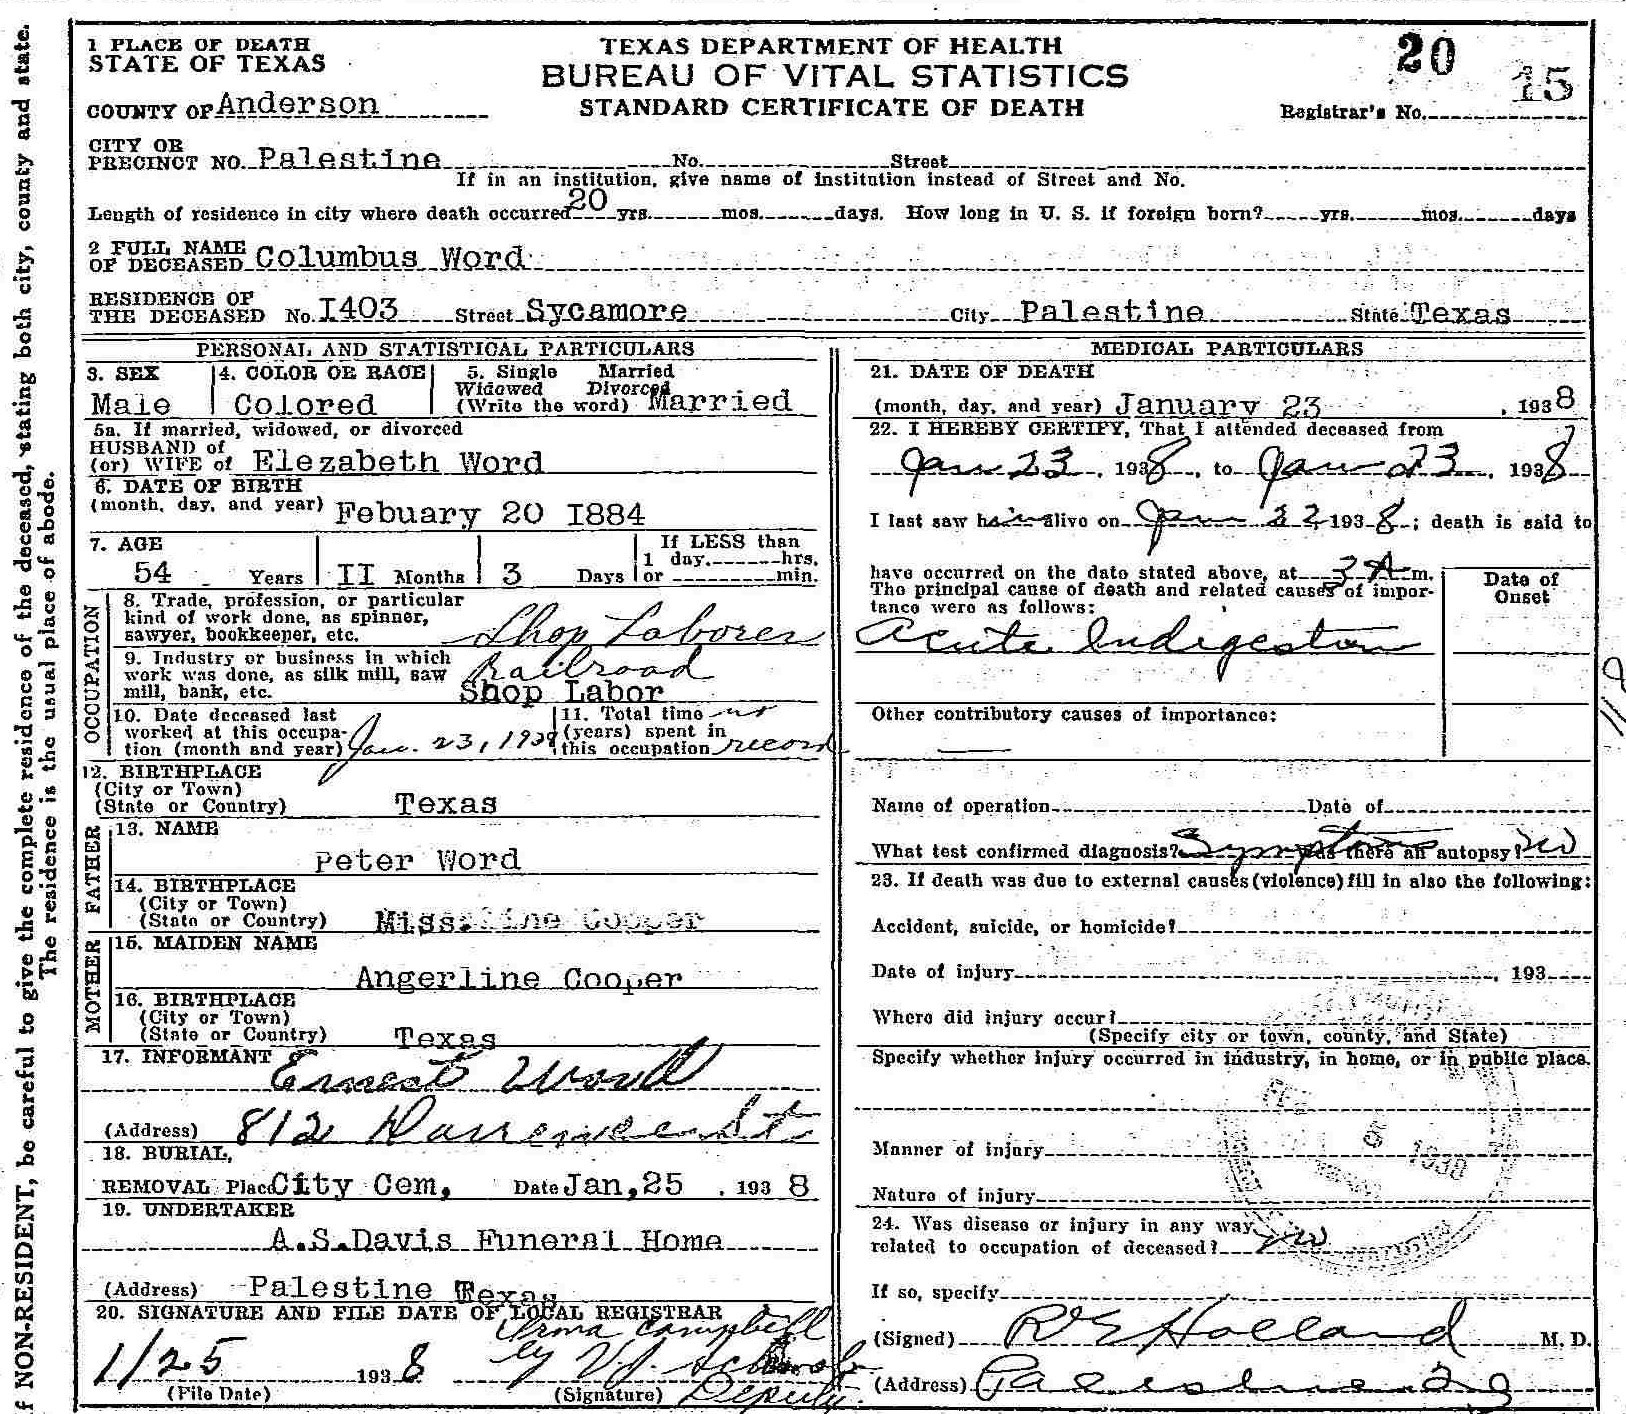 f NON-RESIDENT, be careful to give the complete residence of the deceased, stating both city, county and state.
The residence is the usual place of abode.
1 PLACE OF DEATH
STATE OF TEXAS
COUNTY OF Anderson
TEXAS DEPARTMENT OF HEALTH
BUREAU OF VITAL STATISTICS
STANDARD CERTIFICATE OF DEATH
20
15
Registrar's No.
CITY OR
PRECINCT NO. Palestine No. Street
If in an institution, give name of institution instead of Street and No.
Length of residence in city where death occurred 20 yrs. mos. days. How long in U. S. if foreign born? yrs. mos. days
2 FULL NAME
OF DECEASED Columbus Word
RESIDENCE OF
THE DECEASED No. I403 Street Sycamore City Palestine State Texas
PERSONAL AND STATISTICAL PARTICULARS
3. SEX
Male
4. COLOR OR RACE
Colored
5. Single Married
Widowed Divorced
(Write the word) Married
5a. If married, widowed, or divorced
HUSBAND of
(or) WIFE of Elezabeth Word
6. DATE OF BIRTH
(month, day, and year) Febuary 20 I884
7. AGE
54 Years II Months 3 Days
If LESS than
1 day. hrs.
or min.
OCCUPATION
8. Trade, profession, or particular
kind of work done, as spinner,
sawyer, bookkeeper, etc. Shop Laborer
9. Industry or business in which
work was done, as silk mill, saw
mill, bank, etc. Railroad
Shop Labor
10. Date deceased last
worked at this occupa-
tion (month and year) Jan. 23, 1938
11. Total time no
(years) spent in
this occupation record
12. BIRTHPLACE
(City or Town)
(State or Country) Texas
FATHER
13. NAME
Peter Word
14. BIRTHPLACE
(City or Town)
(State or Country) Miss.
MOTHER
15. MAIDEN NAME
Angerline Cooper
16. BIRTHPLACE
(City or Town)
(State or Country) Texas
17. INFORMANT Ernest Word
(Address) 812 St.
18. BURIAL,
REMOVAL Place City Cem, Date Jan,25 , 193 8
19. UNDERTAKER
A.S.Davis Funeral Home
(Address) Palestine Texas
20. SIGNATURE AND FILE DATE OF LOCAL REGISTRAR
Irma Campbell
1/25 193 8 by V.J.
(File Date) (Signature) Deputy.
MEDICAL PARTICULARS
21. DATE OF DEATH
(month, day, and year) January 23 , 193 8
22. I HEREBY CERTIFY, That I attended deceased from
Jan 23, 193 8, to Jan 23, 193 8
I last saw him alive on Jan 22 193 8; death is said to
have occurred on the date stated above, at 3 A m.
The principal cause of death and related causes of impor-
tance were as follows:
Date of
Onset
Acute Indigestion
Other contributory causes of importance:
Name of operation Date of
What test confirmed diagnosis? Symptoms Was there an autopsy? no
23. If death was due to external causes (violence) fill in also the following:
Accident, suicide, or homicide?
Date of injury , 193
Where did injury occur?
(Specify city or town, county, and State)
Specify whether injury occurred in industry, in home, or in public place.
FEB 5 1938
Manner of injury
Nature of injury
24. Was disease or injury in any way
related to occupation of deceased? no
If so, specify
(Signed) R E Holland M. D.
(Address) Palestine